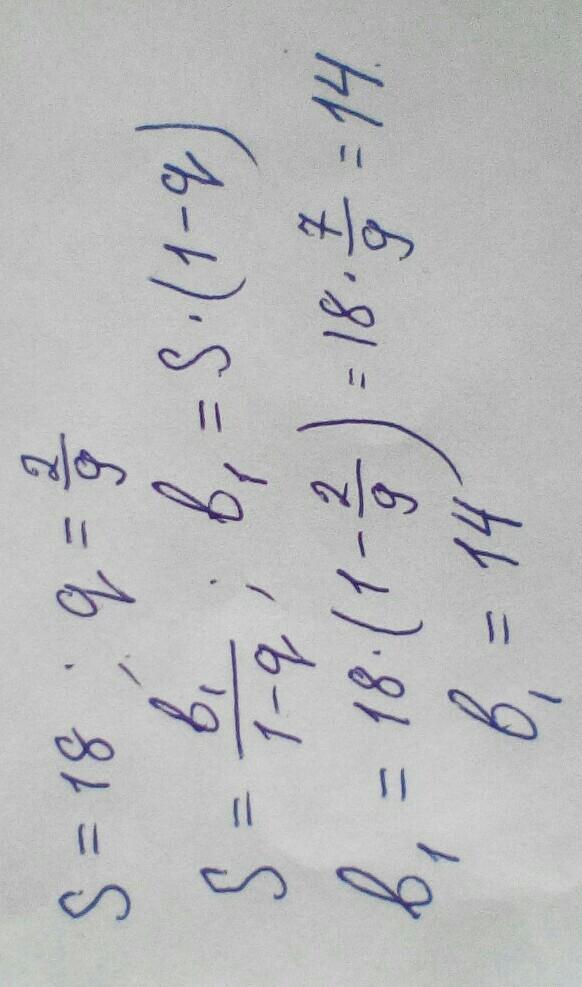 S = 18 ; q = 2/9
S = b₁/(1-q) ; b₁ = S·(1-q)
b₁ = 18·(1-2/9) = 18·7/9 = 14
b₁ = 14